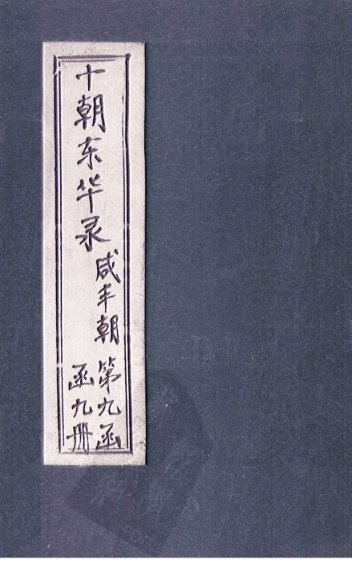 十朝东华录
咸丰朝
第九函
函九册